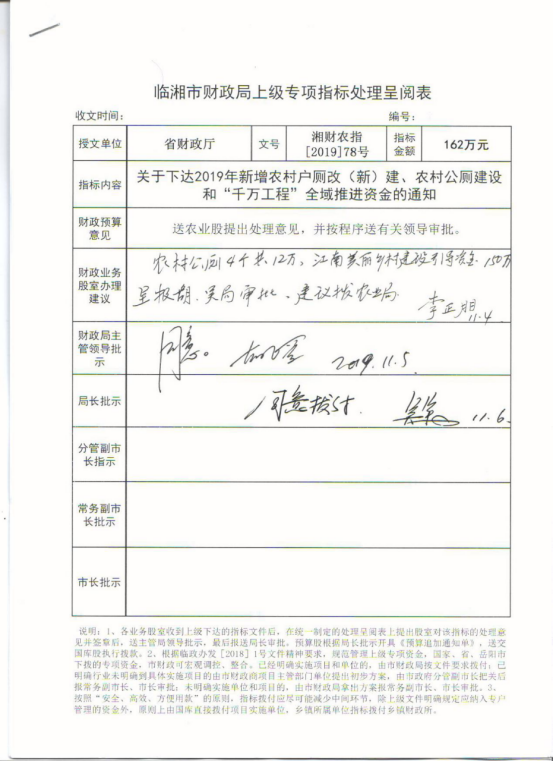 临湘市财政局上级专项指标处理呈阅表
收文时间： 编号：
授文单位 省财政厅 文号 湘财农指[2019]78号 指标金额 162万元
指标内容 关于下达2019年新增农村户厕改（新）建、农村公厕建设
和“千万工程”全域推进资金的通知
财政预算意见 送农业股提出处理意见，并按程序送有关领导审批。
财政业务股室办理建议 农村公厕4个共12万，江南美丽乡村建设引导资金150万
呈报胡、吴局审批、建议拨农业局
李正 11.4
财政局主管领导批示 同意。 2019.11.5
局长批示 同意拨付. 11.6.
分管副市长指示
常务副市长批示
市长批示
说明：1、各业务股室收到上级下达的指标文件后，在统一制定的处理呈阅表上提出股室对该指标的处理意
见并签章后，送主管局领导批示，最后报送局长审批，预算股根据局长批示开具《预算追加通知单》，送交
国库股执行拨款。2、根据临政办发［2018］1号文件精神要求，规范管理上级专项资金，国家、省、岳阳市
下拨的专项资金，市财政可宏观调控、整合。已经明确实施项目和单位的，由市财政局按文件要求拨付；已
明确行业未明确到具体实施项目的由市财政商项目主管部门单位提出初步方案，由市政府分管副市长把关后
报常务副市长、市长审批；未明确实施单位和项目的，由市财政局拿出方案报常务副市长、市长审批。3、
按照“安全、高效、方便用款”的原则，指标拨付应尽可能减少中间环节，除上级文件明确规定应纳入专户
管理的资金外，原则上由国库直接拨付项目实施单位，乡镇所属单位指标拨付乡镇财政所。